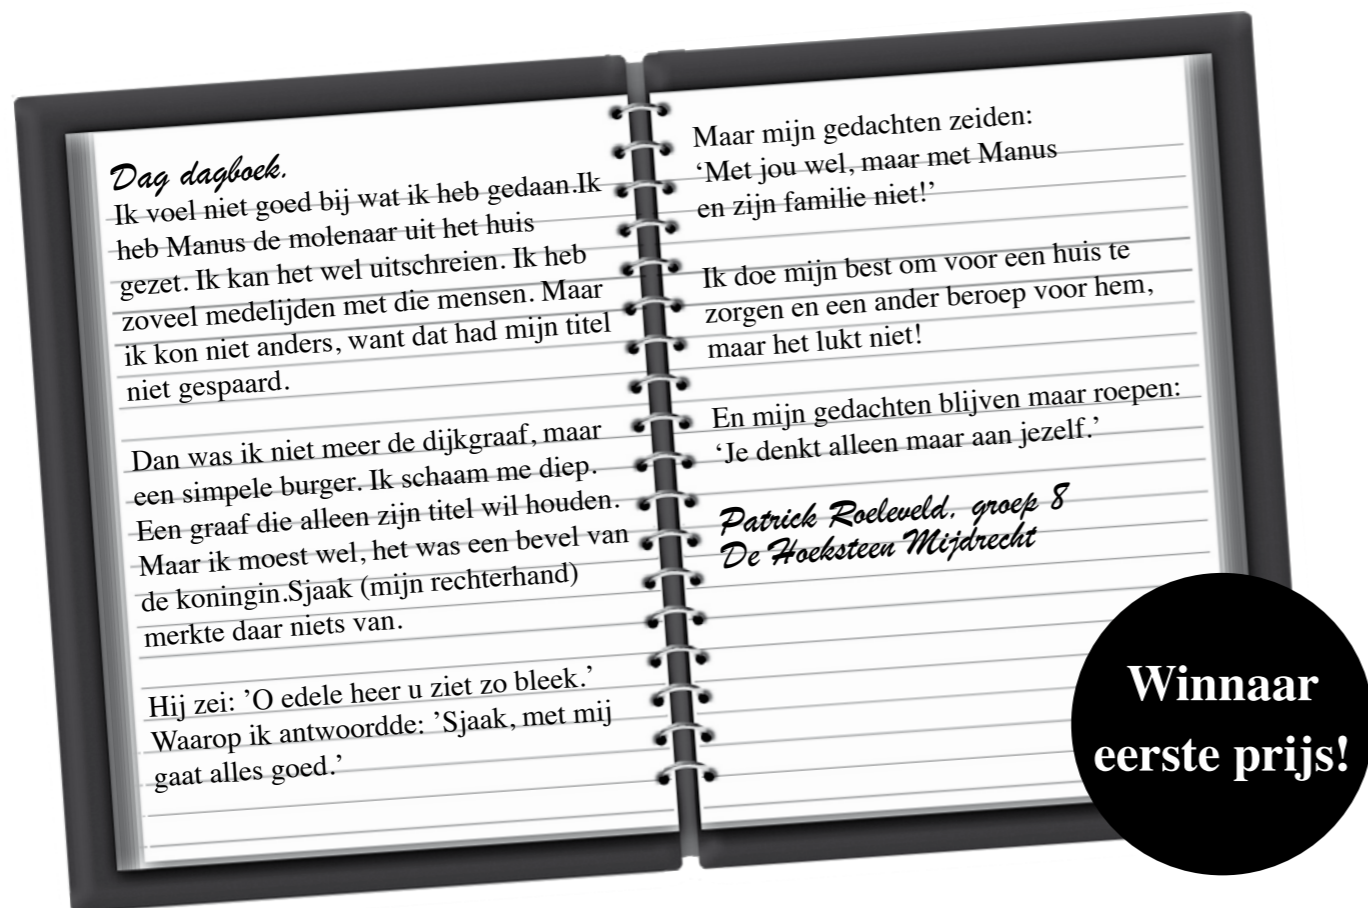 Dag dagboek.
Ik voel niet goed bij wat ik heb gedaan.Ik
heb Manus de molenaar uit het huis
gezet. Ik kan het wel uitschreien. Ik heb
zoveel medelijden met die mensen. Maar
ik kon niet anders, want dat had mijn titel
niet gespaard.
Dan was ik niet meer de dijkgraaf, maar
een simpele burger. Ik schaam me diep.
Een graaf die alleen zijn titel wil houden.
Maar ik moest wel, het was een bevel van
de koningin.Sjaak (mijn rechterhand)
merkte daar niets van.
Hij zei: ’O edele heer u ziet zo bleek.’
Waarop ik antwoordde: ’Sjaak, met mij
gaat alles goed.’
Maar mijn gedachten zeiden:
‘Met jou wel, maar met Manus
en zijn familie niet!’
Ik doe mijn best om voor een huis te
zorgen en een ander beroep voor hem,
maar het lukt niet!
En mijn gedachten blijven maar roepen:
‘Je denkt alleen maar aan jezelf.’
Patrick Roeleveld, groep 8
De Hoeksteen Mijdrecht
Winnaar
eerste prijs!